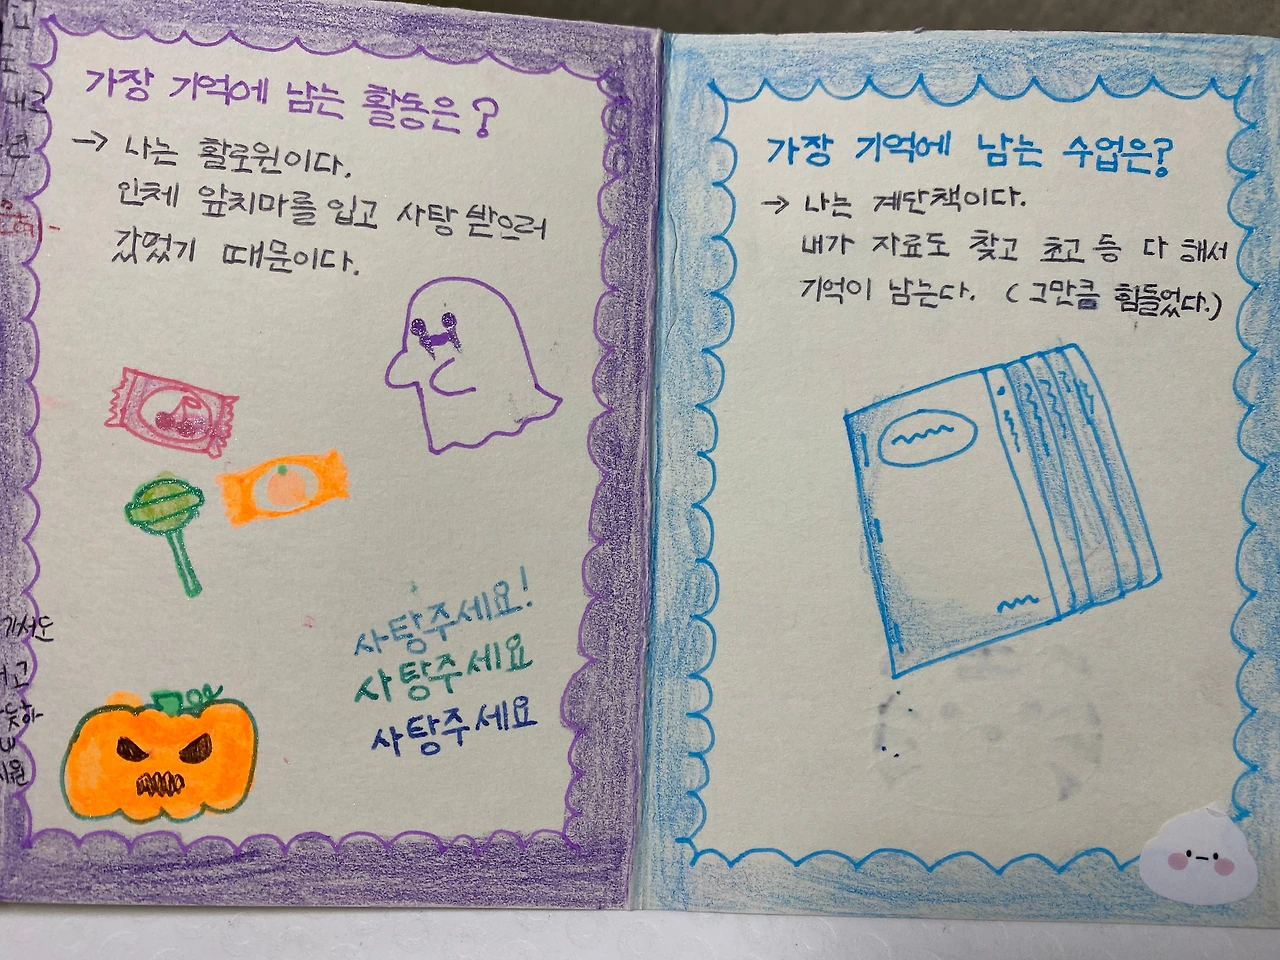 가장 기억에 남는 활동은?
→ 나는 할로윈이다.
인체 앞치마를 입고 사탕 받으러
갔었기 때문이다.
사탕주세요!
사탕주세요
사탕주세요
가장 기억에 남는 수업은?
→ 나는 계단책이다.
내가 자료도 찾고 초고 등 다 해서
기억이 남는다. (그만큼 힘들었다.)